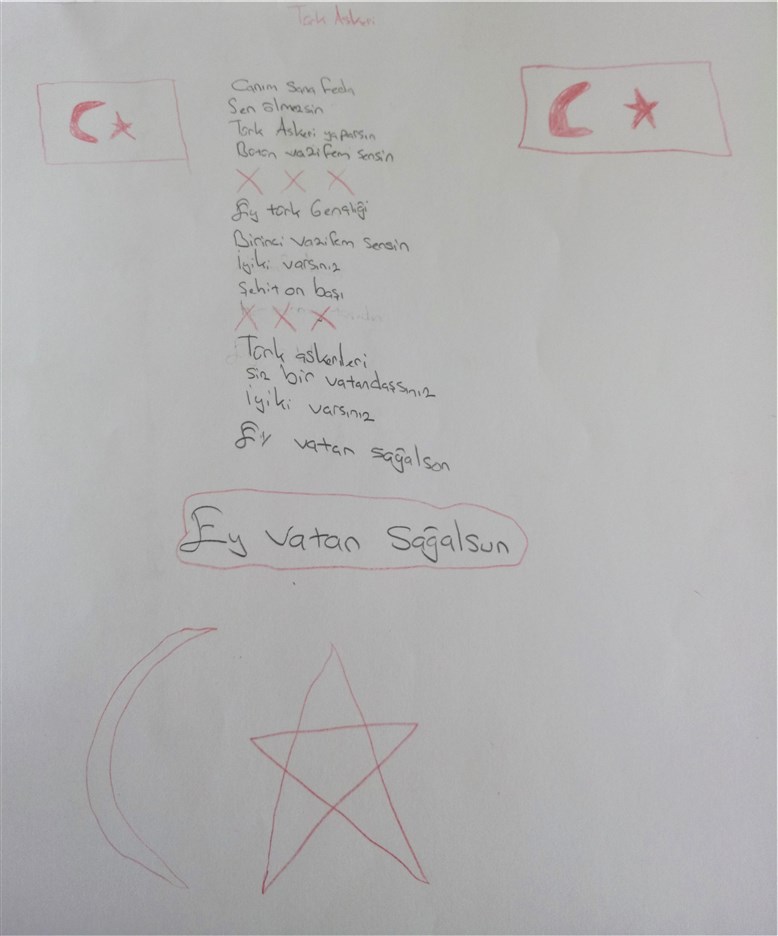 Türk Askeri
Canım sana feda
Sen ölmezsin
Türk Askeri yaparsın
Bütün vazifem sensin
X X X
Ey türk Gençliği
Birinci vazifem sensin
İyiki varsınız
Şehit on başı
X X X
Türk askerleri
siz bir vatandaşsınız
İyiki varsınız
Ey vatan sağalson
Ey vatan sağalsun